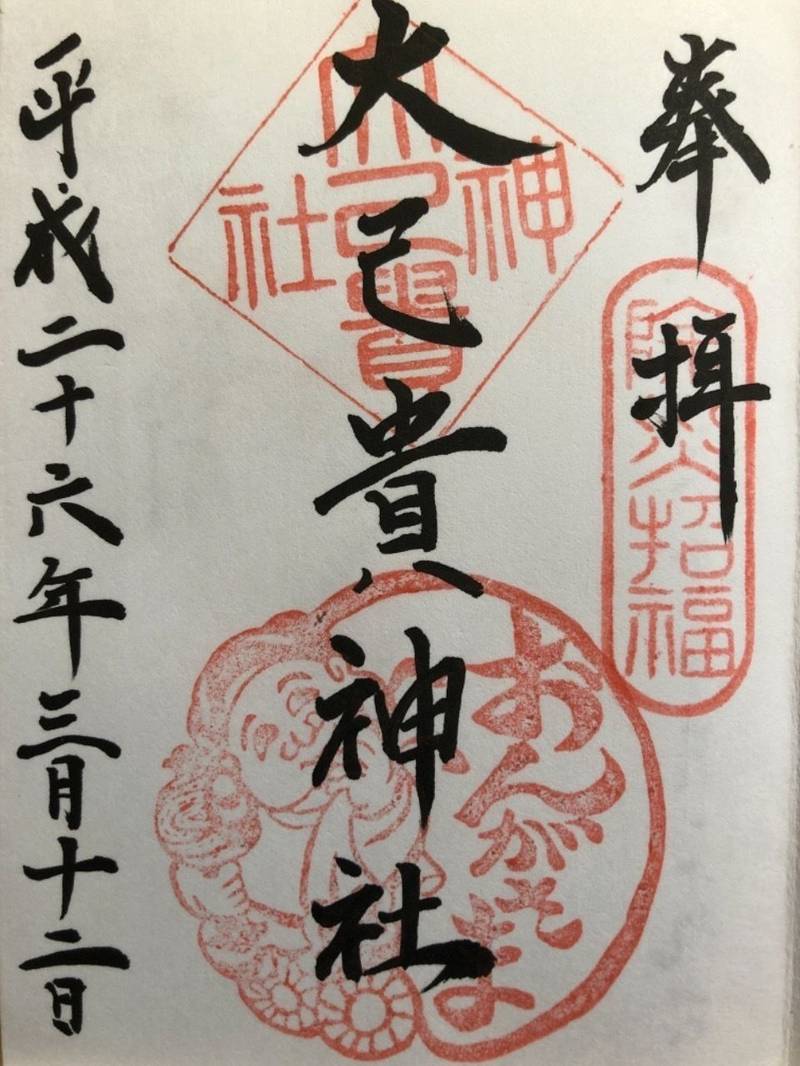 奉拝
除災招福
大己貴神社
大己貴神社
おんがさま
平成二十六年三月十二日